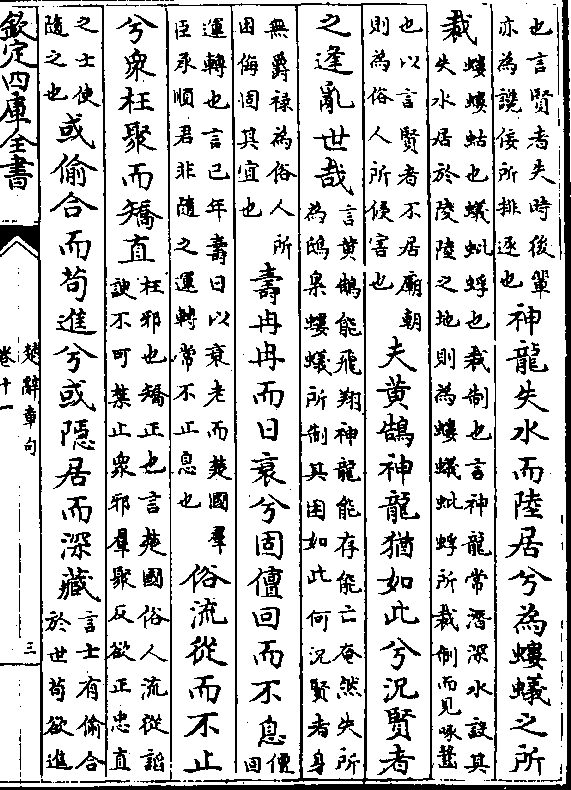 也言賢者失時後輩
亦為讒佞所排逐也
神龍失水而陸居兮為螻蟻之所
裁
螻螻蛄也蟻蚍蜉也裁制也言神龍常潛深水設其
失水居於陵陸之地則為螻蟻蚍蜉所裁制而見啄齧
也以言賢者不居廟朝
則為俗人所侵害也
夫黄鵠神龍猶如此兮況賢者
之逢亂世哉
言黄鵠能飛翔神龍能存能亡奄然失所
為鴟梟螻蟻所制其困如此何況賢者身
無爵祿為俗人所
困侮固其宜也
壽冉冉而日衰兮固儃回而不息
儃
回
運轉也言已年壽日以衰老而楚國羣
臣承順君非隨之運轉常不止息也
俗流從而不止
兮衆枉聚而矯直
枉邪也矯正也言楚國俗人流從諂
諛不可禁止衆邪羣聚反欲正忠直
之士使
隨之也
或偷合而苟進兮或隱居而深藏
言士有偷合
於世苟欲進
欽定四庫全書
楚辭章句
卷十一
三